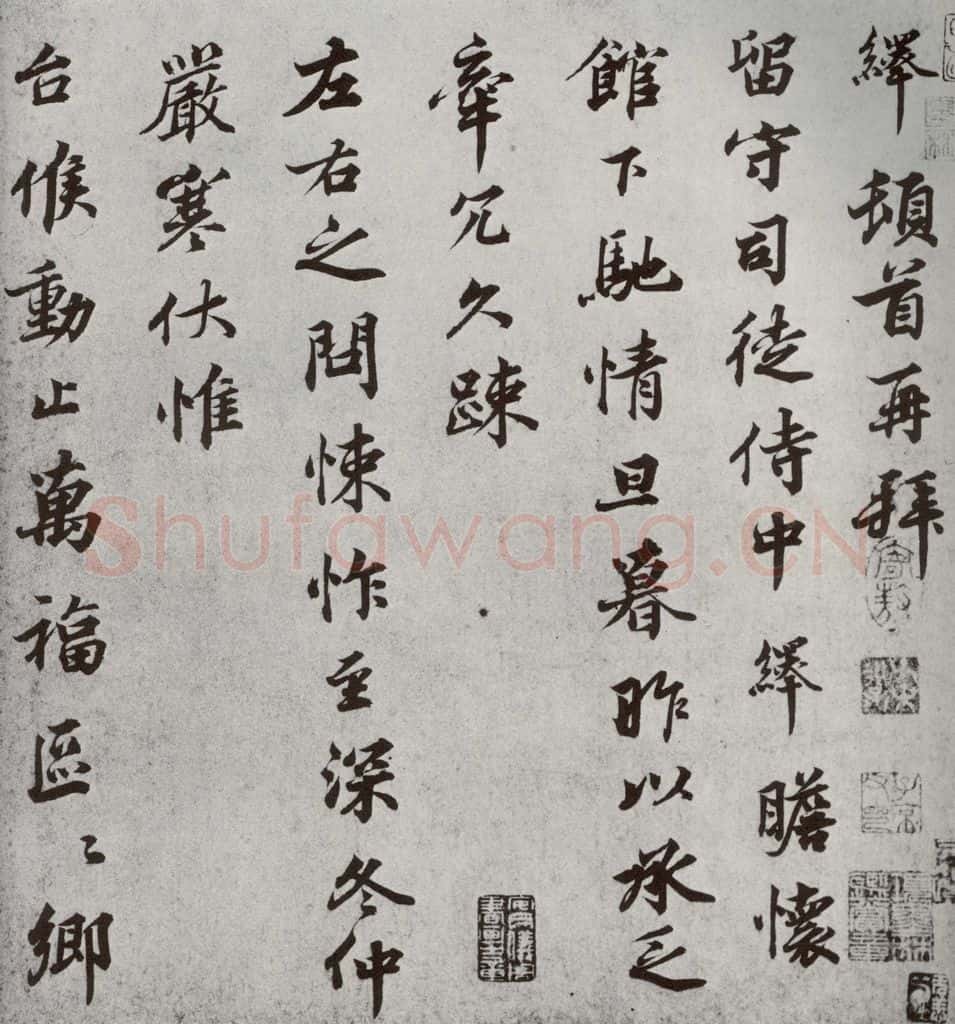 繹頓首再拜
留守司徒侍中繹瞻懷
館下馳情旦暮昨以承乏
牽冗久踈
左右之問悚怍至深冬仲
嚴寒伏惟
台候動止萬福區〻鄉
Shufawang.CN